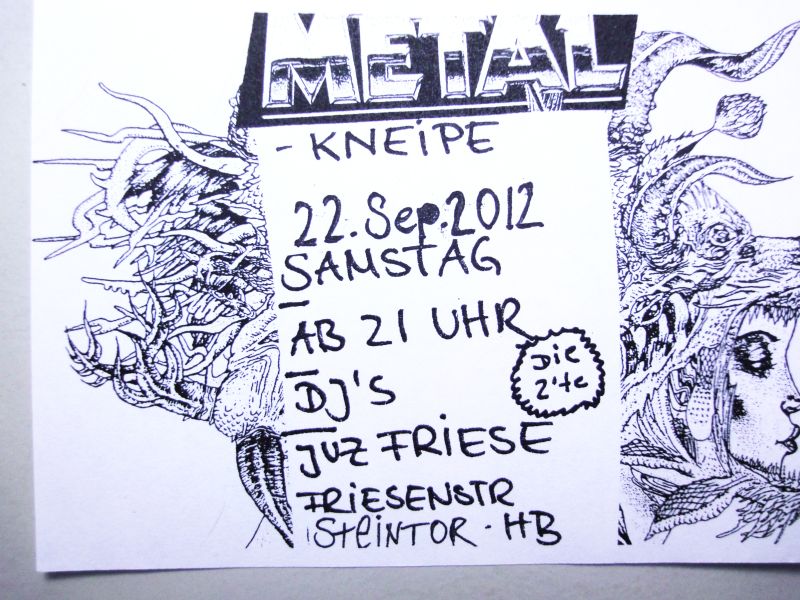 METAL
- KNEiPE
22. Sep. 2012
SAMSTAG
AB 21 UHR
Die
2'te
DJ'S
JUZ FRIESE
FRIESENSTR
STEiNTOR - HB